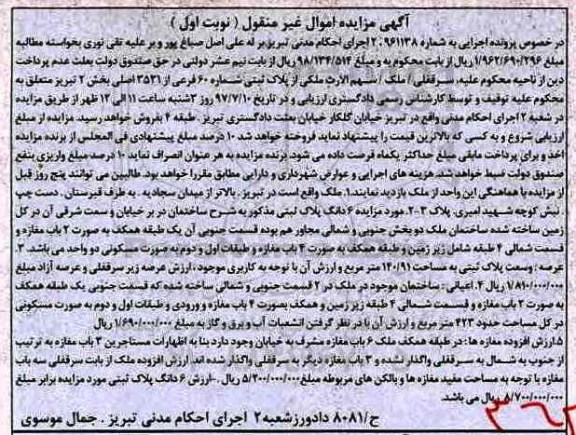 آگهی مزایده اموال غیر منقول ( نوبت اول )
در خصوص پرونده اجرایی به شماره ۹۶۱۱۳۸ . ۲ اجرای احکام مدنی تبریز،بر له علی اصل صباغ پور و بر علیه تقی نوری بخواسته مطالبه
مبلغ ۱/۹۶۲/۶۹۰/۲۹۶ ریال از بابت محکوم به و مبلغ ۹۸/۱۳۴/۵۱۴ ریال از بابت نیم عشر دولتی در حق صندوق دولت بعلت عدم پرداخت
دین از ناحیه محکوم علیه، سرقفلی / ملک / سهم الارث ملکی از پلاک ثبتی شماره ۶۰ فرعی از ۳۵۳۱ اصلی بخش ۲ تبریز متعلق به
محکوم علیه توقیف و توسط کارشناس رسمی دادگستری ارزیابی و در تاریخ ۹۷/۷/۱۰ روز ۳شنبه ساعت ۱۱ الی ۱۲ ظهر از طریق مزایده
در شعبه ۲ اجرای احکام مدنی واقع در تبریز خیابان گلکار خیابان بعثت دادگستری تبریز . طبقه ۴ بفروش خواهد رسید. مزایده از مبلغ
ارزیابی شروع و به کسی که بالاترین قیمت را پیشنهاد نماید فروخته خواهد شد ۱۰ درصد مبلغ پیشنهادی فی المجلس از برنده مزایده
اخذ و برای پرداخت مابقی مبلغ حداکثر یکماه فرصت داده می شود. برنده مزایده به هر عنوان انصراف نماید ۱۰ درصد مبلغ واریزی بنفع
صندوق دولت ضبط خواهد شد. هزینه های اجرایی و عوارض شهرداری و دارایی مطابق مقررا خواهد بود. طالبین می توانند پنج روز قبل
از مزایده با هماهنگی این واحد از ملک بازدید نمایند.۱. ملک واقع است در تبریز . بالاتر از میدان سجادیه . به طرف قبرستان . دست چپ
. نبش کوچه شهید امیری. پلاک ۳-۲. مورد مزایده ۶ دانگ پلاک ثبتی مذکور به شرح ساختمان در بر خیابان و سمت شرقی آن در کل
زمین ساخته شده ساختمان ملک دو بخش جنوبی و شمالی مجاور هم بوده قسمت جنوبی آن یک طبقه همکف به صورت ۲ باب مغازه و
قسمت شمالی ۴ طبقه شامل زیر زمین و طبقه همکف به صورت ۴ باب مغازه و طبقات اول و دوم به صورت مسکونی دو واحد می باشد. ۳.
عرصه : وسعت پلاک ثبتی به مساحت ۱۴۰/۹۱ متر مربع و ارزش آن با توجه به کاربری موجود ، ارزش عرصه زیر سرقفلی و عرصه آزاد مبلغ
۱/۸۱۰/۰۰۰/۰۰۰ ریال ۴. اعیانی : ساختمان موجود در ملک در ۲ قسمت جنوبی و شمالی ساخته شده که قسمت جنوبی یک طبقه همکف
به صورت ۲ باب مغازه و قسمت شمالی ۴ طبقه زیر زمین و همکف بصورت ۴ باب مغازه و ورودی و طبقات اول و دوم به صورت مسکونی
در کل مساحت حدود ۴۲۳ متر مربع و ارزش آن با در نظر گرفتن انشعابات آب و برق و گاز به مبلغ ۱/۶۹۰/۰۰۰/۰۰۰ ریال
۵.ارزش افزوده مغازه ها : در طبقه همکف ملک ۶ باب مغازه مشرف به خیابان وجود دارد بنا به اظهارات مستاجرین ۳ باب مغازه به ترتیب
از جنوب به شمال به سرقفلی واگذار نشده و ۳ باب مغازه دیگر به سرقفلی واگذار شده اند. ارزش افزوده ملک از بابت سرقفلی سه باب
مغازه با توجه به مساحت مفید مغازه ها و بالکن های مربوطه مبلغ ۵/۲۰۰/۰۰۰/۰۰۰ ریال . -ارزش ۶ دانگ پلاک ثبتی مورد مزایده برابر مبلغ
۸/۷۰۰/۰۰۰/۰۰۰ ریال می باشد.
ح/۸۰۸۱ دادورز شعبه ۲ اجرای احکام مدنی تبریز . جمال موسوی